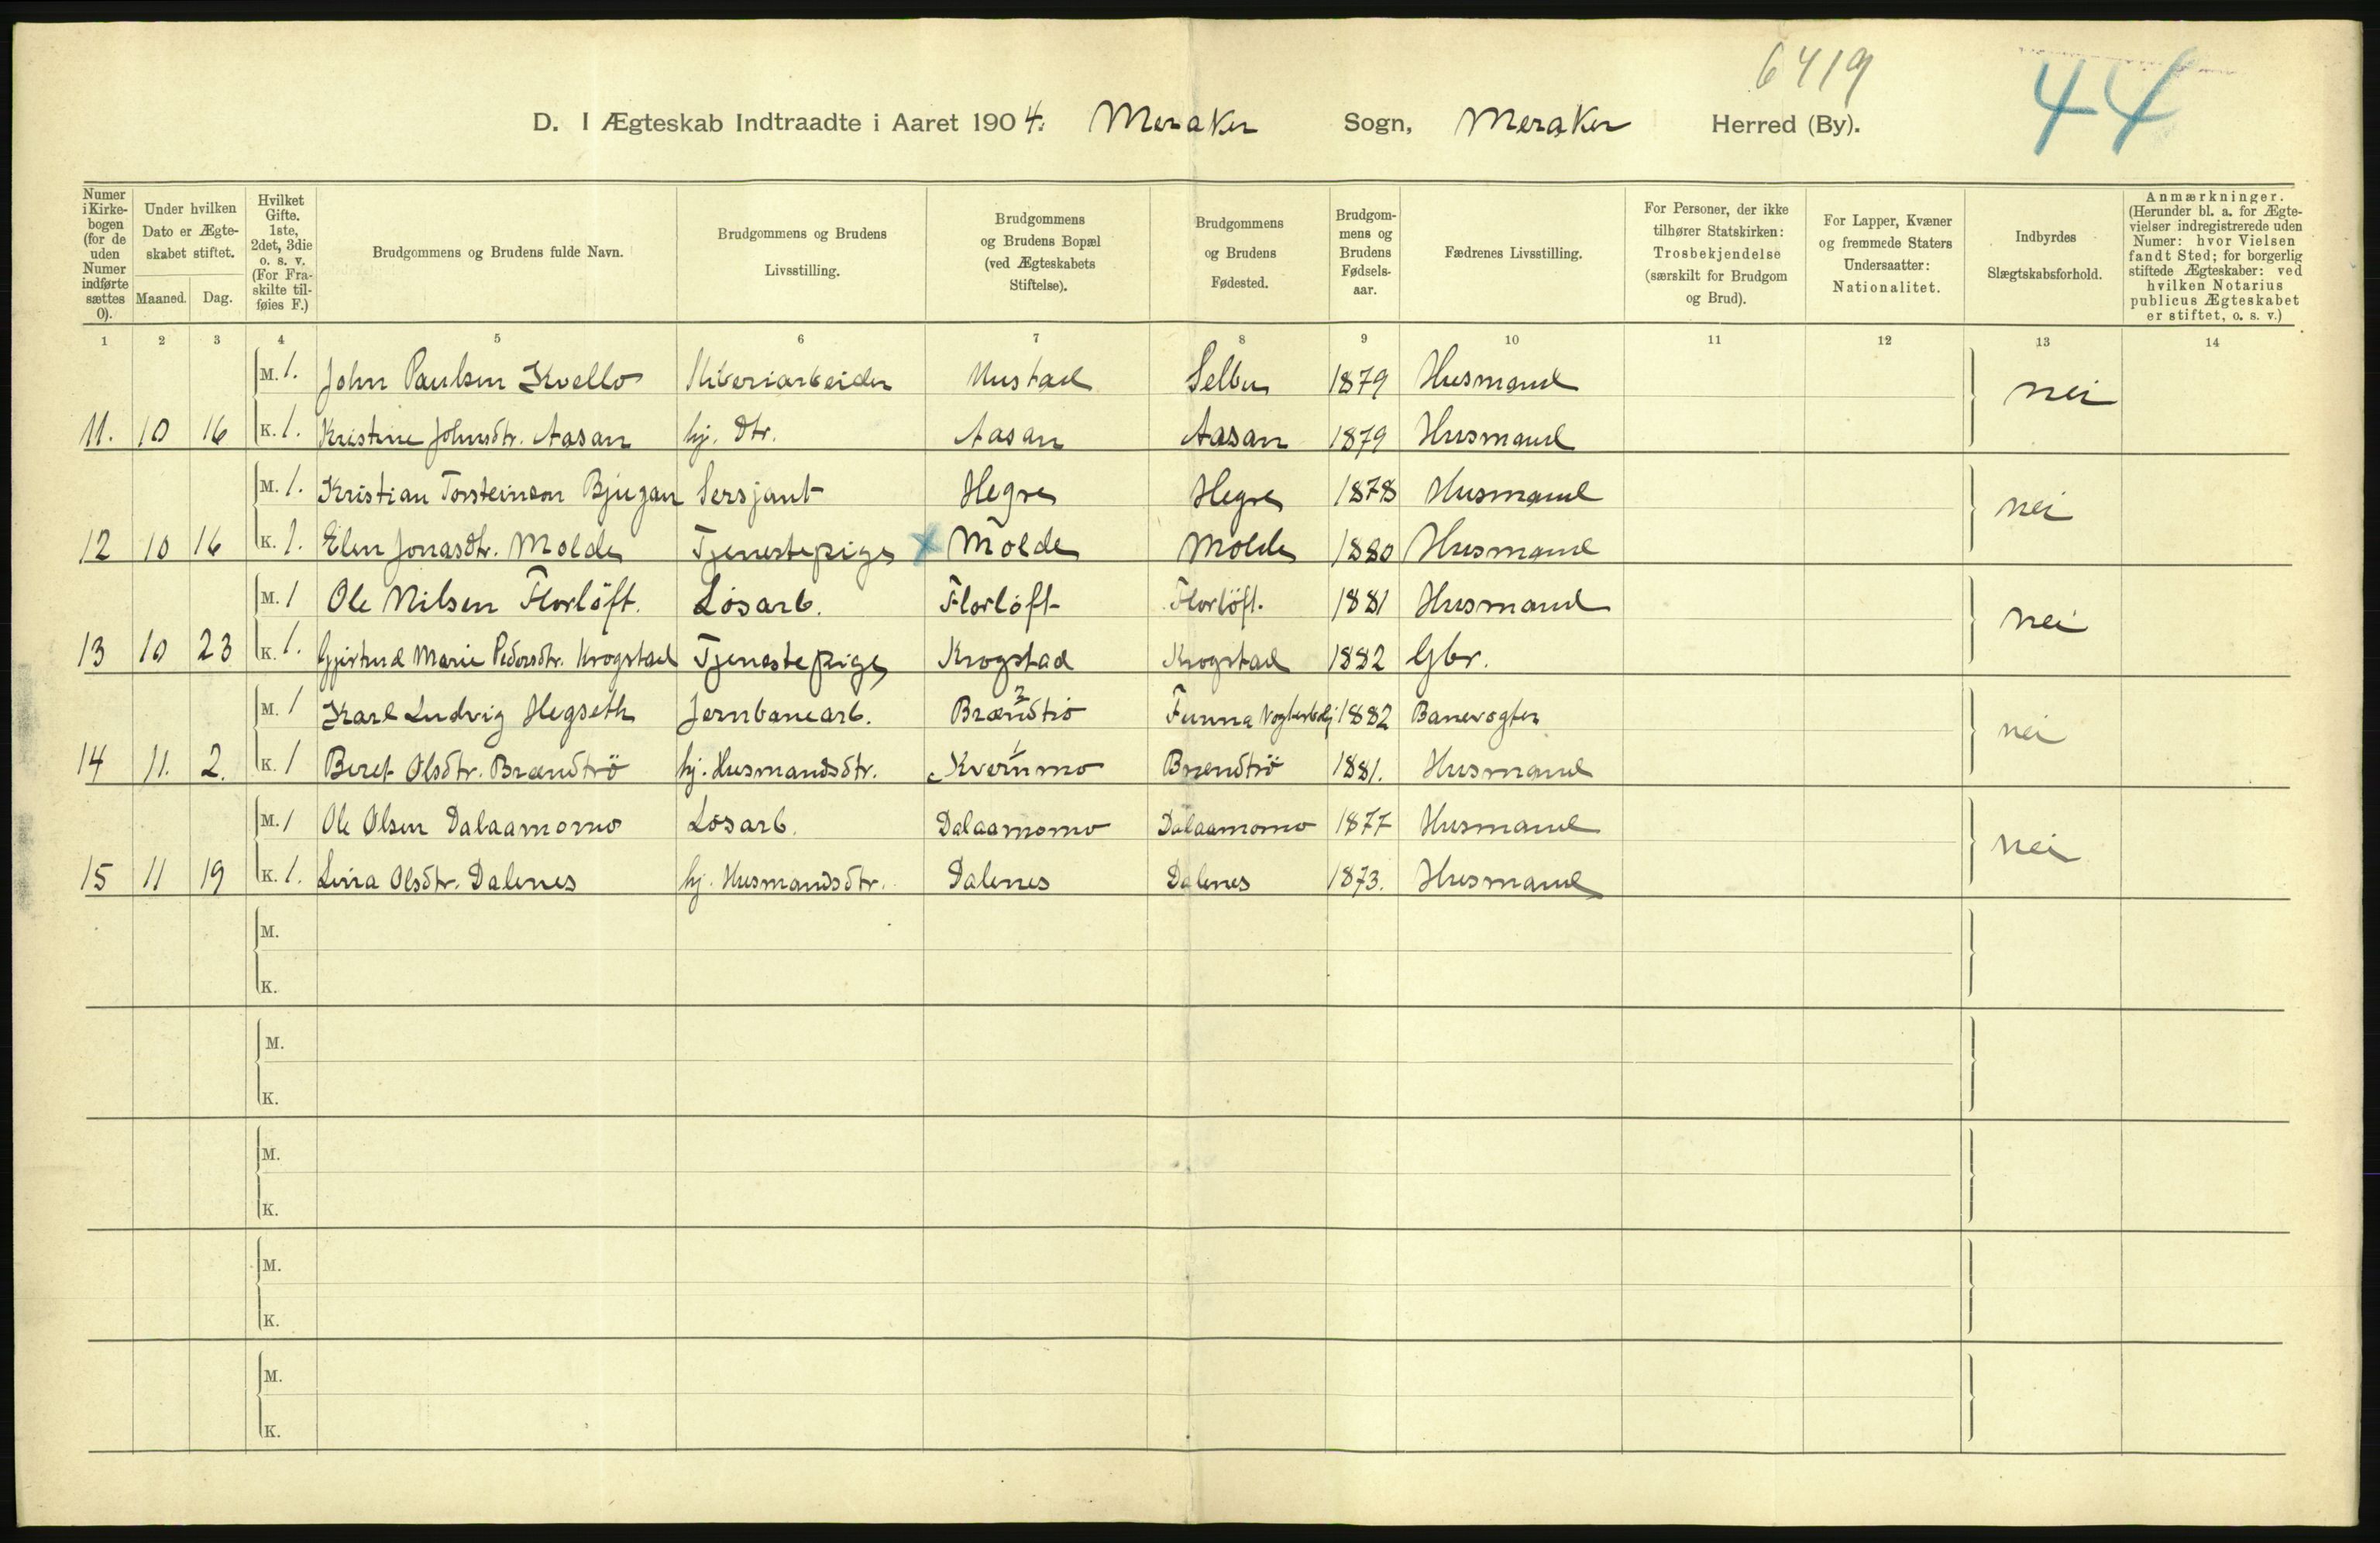 6419
44
D. I Ægteskab Indtraadte i Aaret 1904. Meraker Sogn, Meraker Herred (By).
Numer i Kirkebogen (for de uden Numer indførte sættes 0).
Under hvilken Dato er Ægteskabet stiftet.
Maaned. Dag.
Hvilket Gifte. 1ste, 2det, 3die o. s. v. (For Fraskilte tilføies F.)
Brudgommens og Brudens fulde Navn.
Brudgommens og Brudens Livsstilling.
Brudgommens og Brudens Bopæl (ved Ægteskabets Stiftelse).
Brudgommens og Brudens Fødested.
Brudgommens og Brudens Fødselsaar.
Fædrenes Livsstilling.
For Personer, der ikke tilhører Statskirken: Trosbekjendelse (særskilt for Brudgom og Brud).
For Lapper, Kvæner og fremmede Staters Undersaatter: Nationalitet.
Indbyrdes Slægtskabsforhold.
Anmærkninger. (Herunder bl. a. for Ægtevielser indregistrerede uden Numer: hvor Vielsen fandt Sted; for borgerlig stiftede Ægteskaber: ved hvilken Notarius publicus Ægteskabet er stiftet, o. s. v.)
1 2 3 4 5 6 7 8 9 10 11 12 13 14
M. 1. John Paulsen Kvello Skiveriarbeider Mustad Selbu 1879 Husmand nei
11. 10 16 K. 1. Kristine Johnsdtr. Aasan hj. dtr. Aasan Aasan 1879 Husmand
M. 1. Kristian Torsteinson Bjugan Sersjant Hegre Hegre 1878 Husmand nei
12 10 16 K. 1. Elen Jonasdtr. Molde Tjenestepige x Molde Molde 1880 Husmand
M. 1 Ole Nilsen Florlöft. Løsarb. Florlöft Florlöft. 1881 Husmand nei
13 10 23 K. 1. Gjertrud Marie Pedersdtr. Krogstad Tjenestepige Krogstad Krogstad 1882 Gbr.
M. 1 Karl Ludvig Hegseth Jernbanearb. 2 Brændtrö Funna Vogterbolj 1882 Banevogter nei
14 11. 2. K. 1 Beret Olsdtr. Brændtrö hj. Husmandsdtr. 1 Kvernmo Brændtrö 1881. Husmand
M. 1 Ole Olsen Dalaamomo Løsarb. Dalaamomo Dalaamomo 1877 Husmand nei
15 11 19 K. 1. Lina Olsdtr. Dalenes hj. Husmandsdtr. Dalenes Dalenes 1873. Husmand
M.
K.
M.
K.
M.
K.
M.
K.
M.
K.